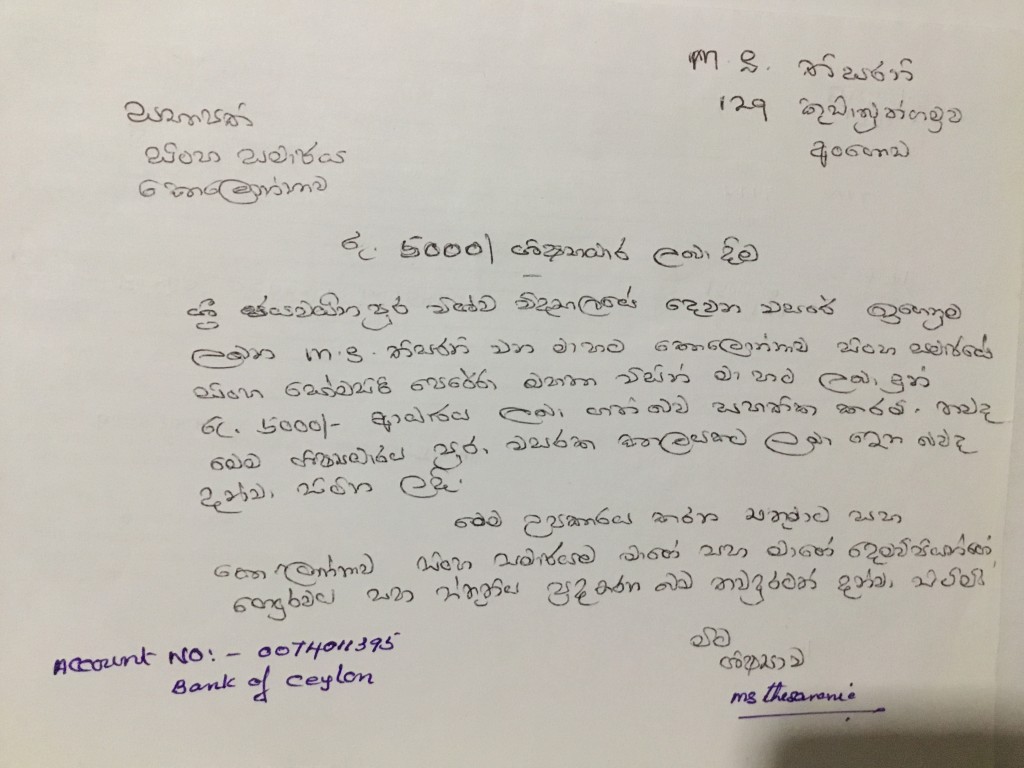 M. S. තිසරානි
129 කුඩාබුත්ගමුව
අංගොඩ
සභාපති
සිංහ සමාජය
කොලොන්නාව
රු. 5000/ ශිෂ්‍යාධාර ලබා දීම
ශ්‍රී ජයවර්ධනපුර විශ්ව විද්‍යාලයේ දෙවන වසරේ ඉගෙනුම
ලබන M. S. තිසරානි වන මා හට කොලොන්නාව සිංහ සමාජයේ
සිංහ පෙරේරා මහතා විසින් මා හට ලබා දුන්
රු. 5000/- ආධාරය ලබා ගත් බව සහතික කරමි. තවද
මෙම ශිෂ්‍යාධාරය පුරා වසරක කාලයකට ලබා දෙන බවද
දන්වා සිටින ලදි.
මෙම උපකාරය කරන සහ
කොලොන්නාව සිංහ සමාජයට මාගේ සහ මාගේ දෙමව්පියන්ගේ
ගෞරවය සහ ස්තූතිය පුද කරන බව තවදුරටත් දන්වා සිටිමි.
මීට
ශිෂ්‍යාව
ms thesaranie
Account NO:- 0074011395
Bank of Ceylon